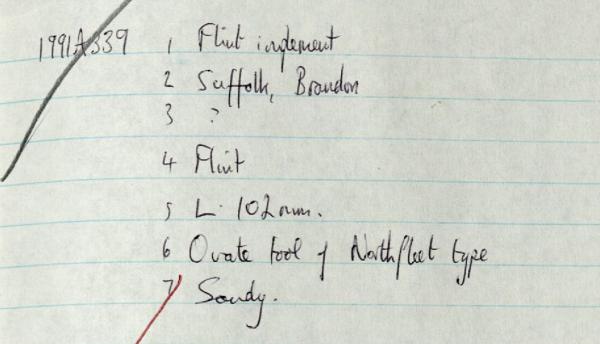 1991A339 1 Flint implement
2 Suffolk, Brandon
3 ?
4 Flint
5 L. 102mm.
6 Ovate tool of Northfleet type
7 Sandy.